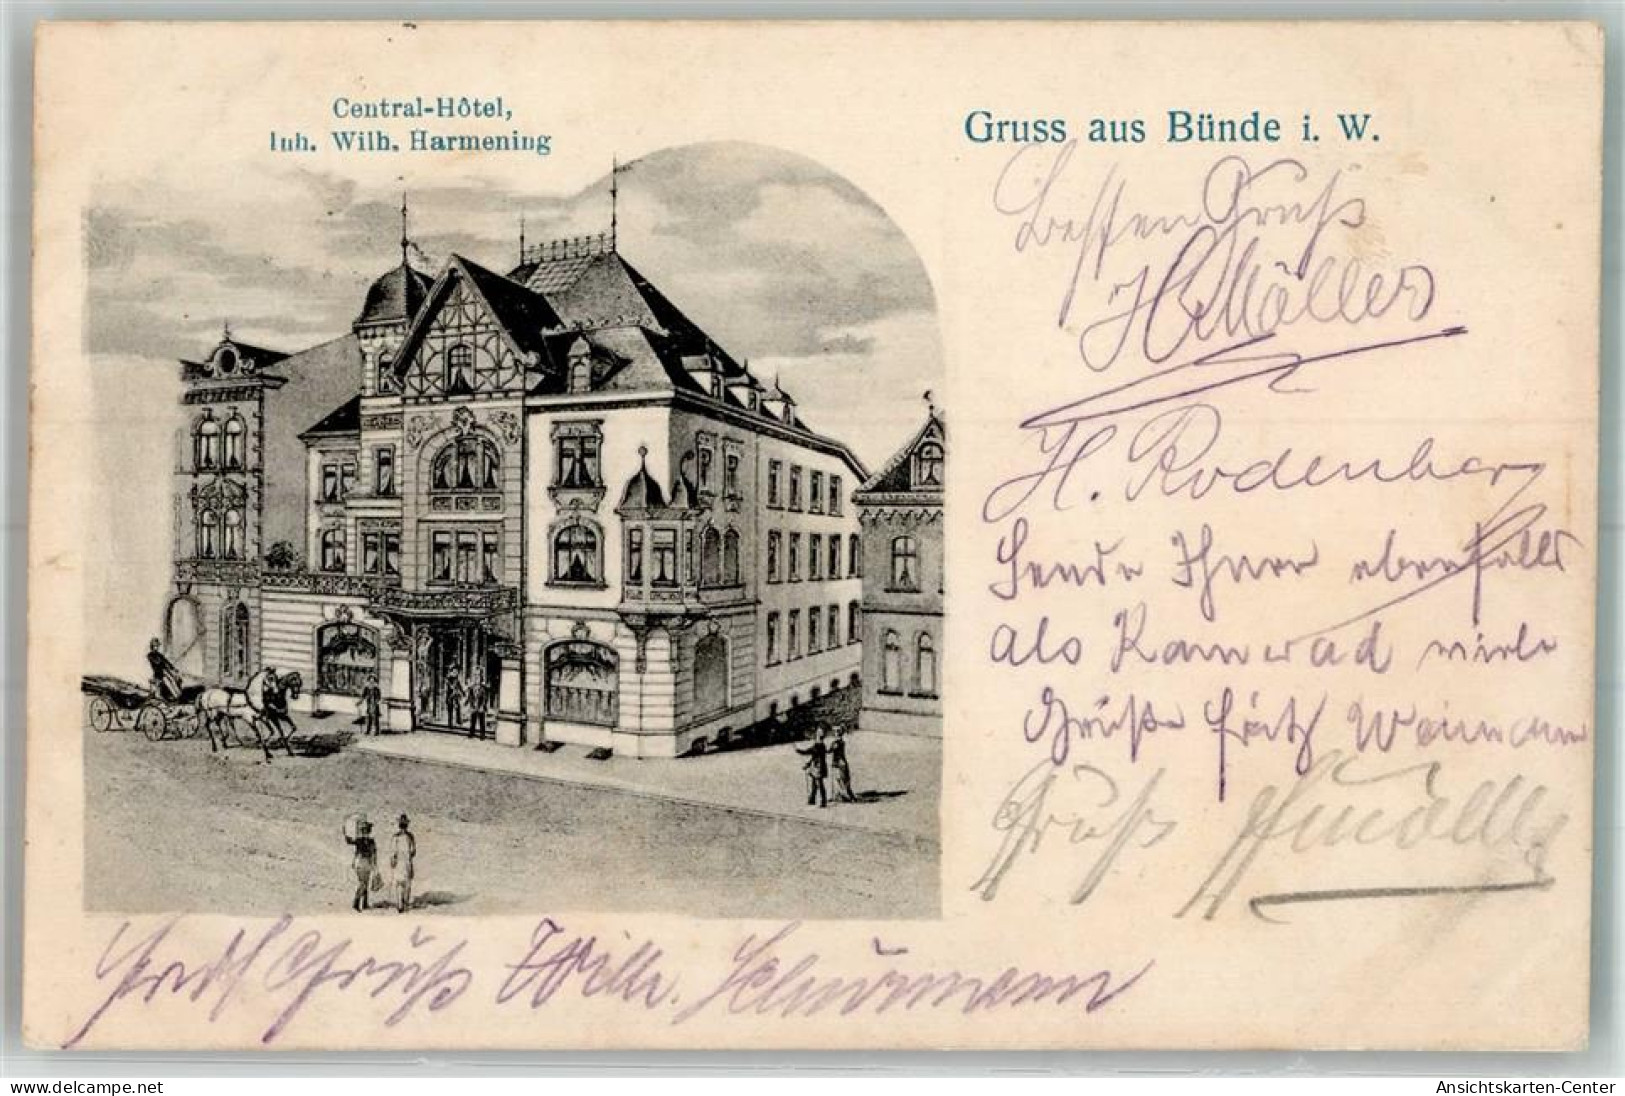 Central-Hôtel,
Inh. Wilh. Harmening
Gruss aus Bünde i. W.
Besten Gruß
H Möller
H. Rodenberg
Sende Ihnen ebenfalls
als Kamerad viele
Grüße Fritz Weimann
Gruß
Gruß Wilh. Schürmann
www.delcampe.net
Ansichtskarten-Center